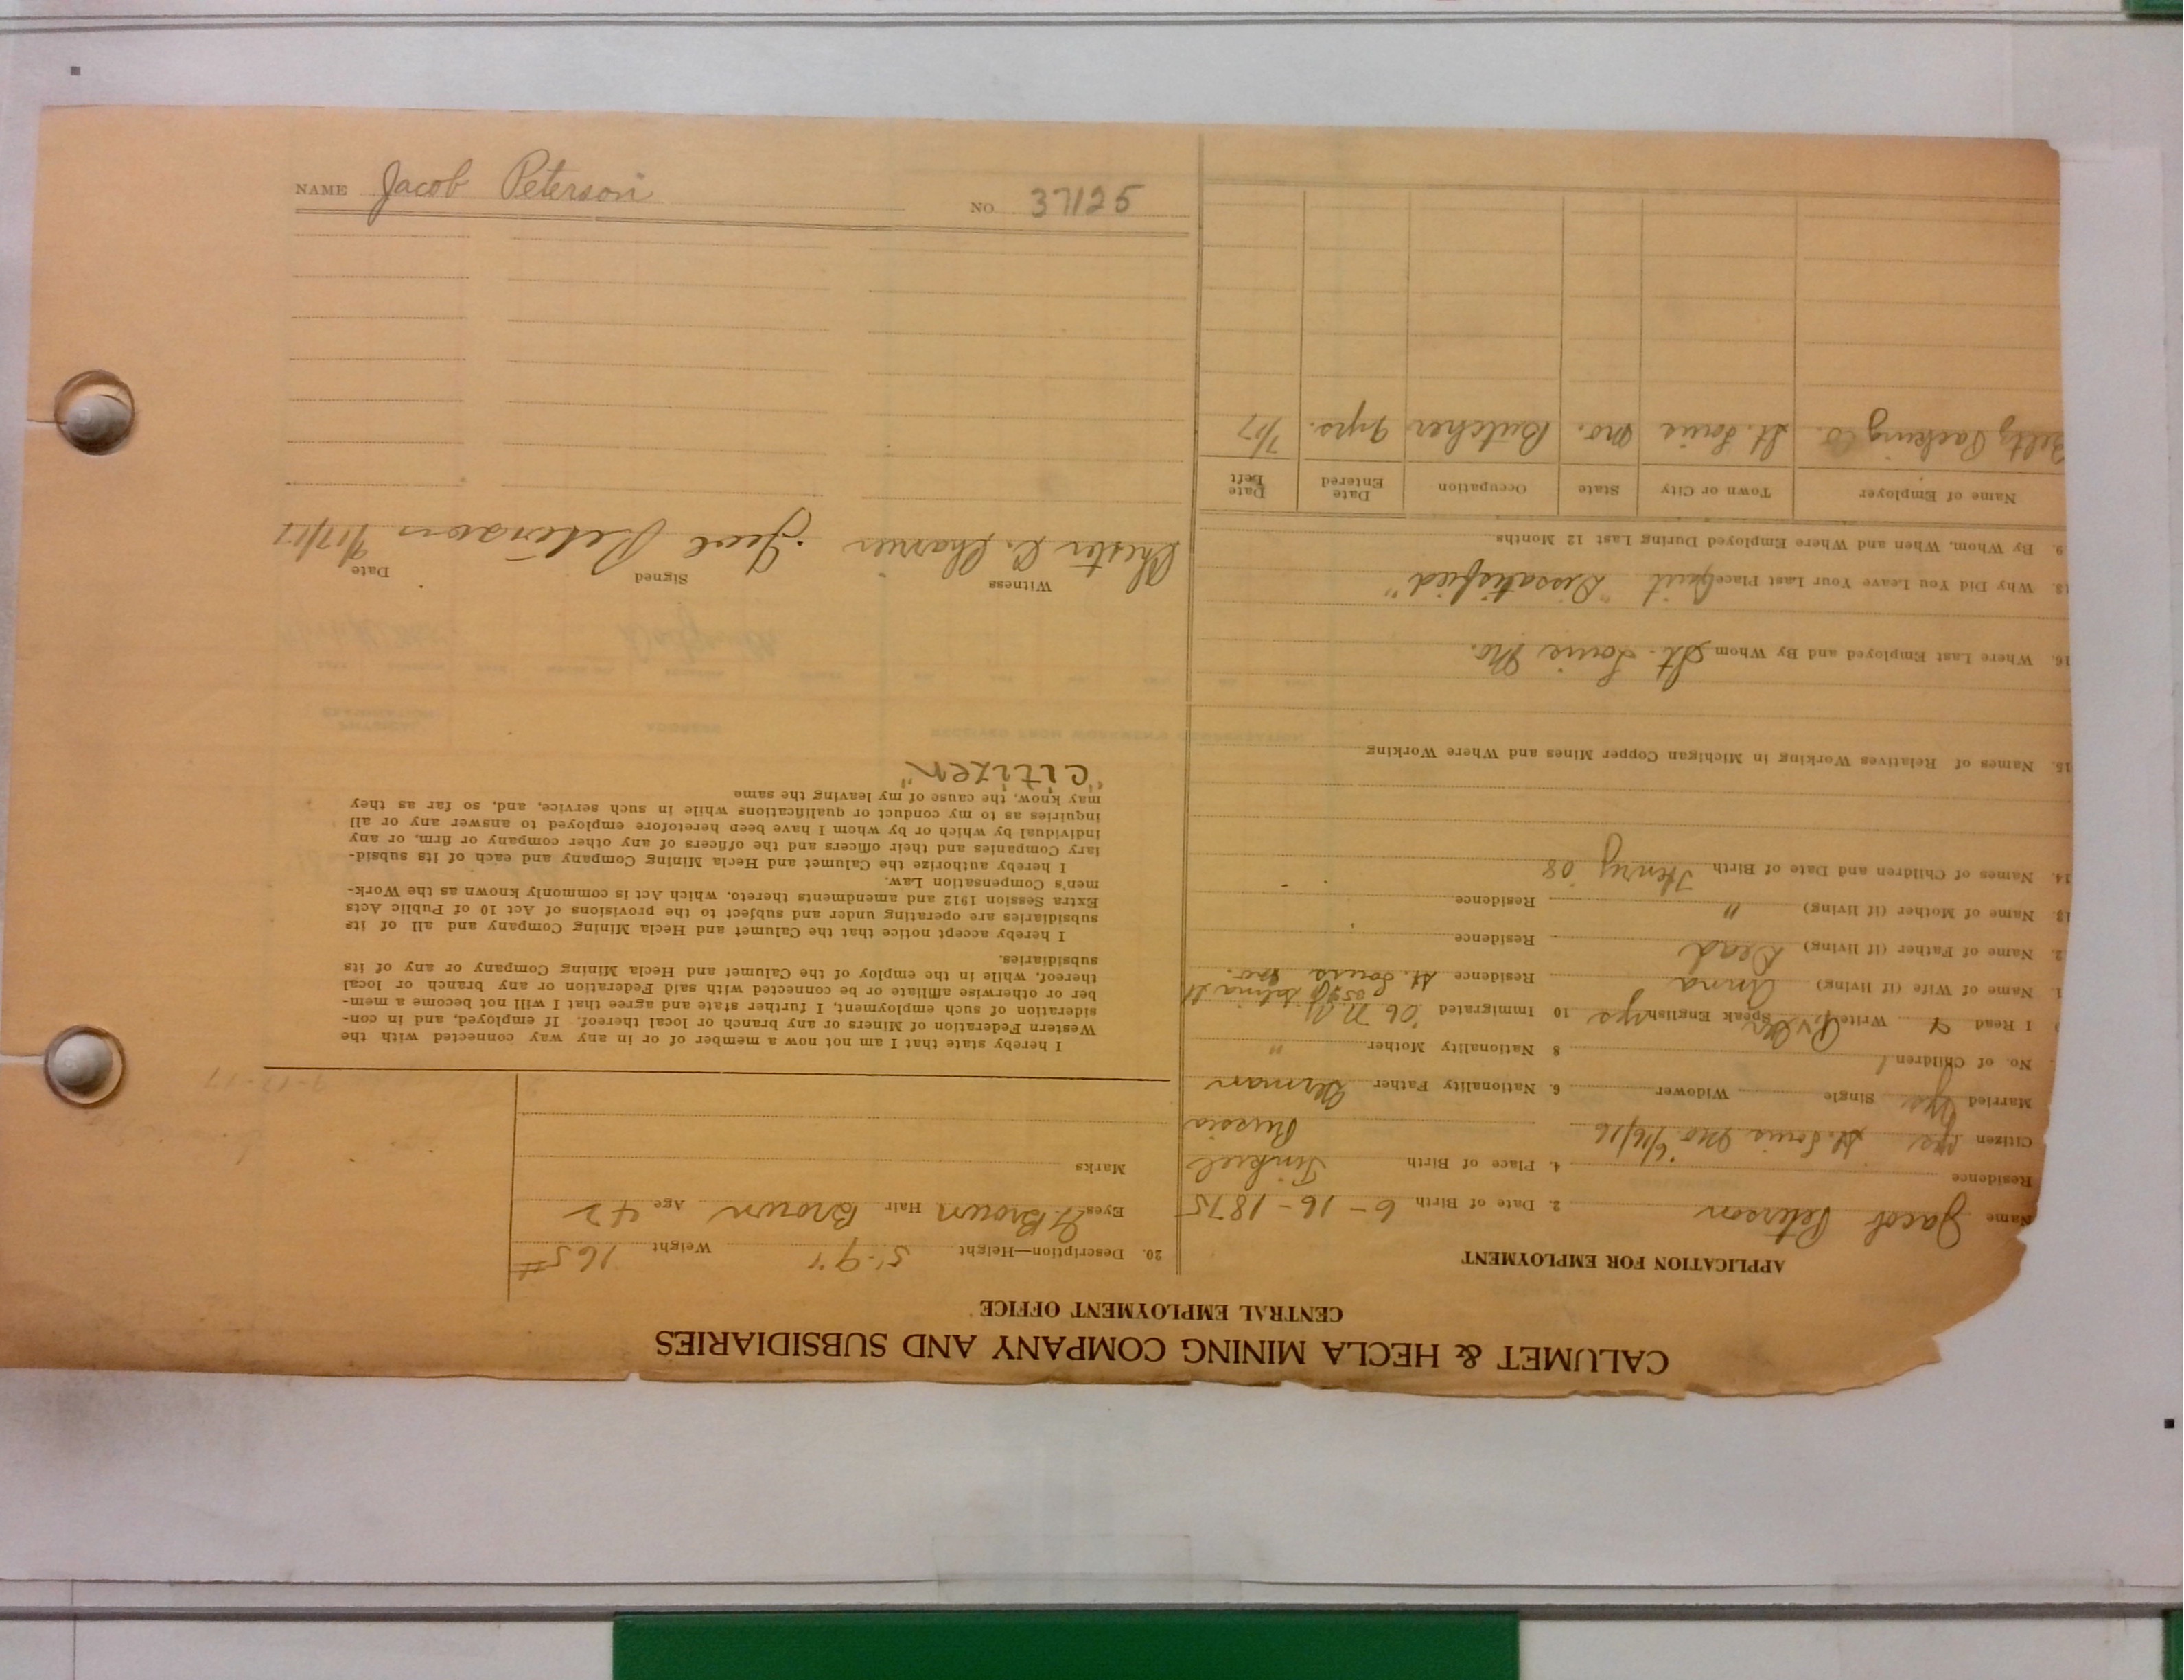 CALUMET & HECLA MINING COMPANY AND SUBSIDIARIES
CENTRAL EMPLOYMENT OFFICE
APPLICATION FOR EMPLOYMENT
Name Jacob Peterson 2. Date of Birth 6-16-1875
Residence 4. Place of Birth
Citizen yes St. Louis Mo 6/16/16 Russia
Married yes Single Widower 6. Nationality Father German
No. of Children 1 8 Nationality Mother "
I Read Write Speak English yes 10 Immigrated '06 N.Y.
1. Name of Wife (if living) Anna Residence St. Louis Mo.
2. Name of Father (if living) Dead Residence
13. Name of Mother (if living) " Residence
14. Names of Children and Date of Birth Henry '08
15. Names of Relatives Working in Michigan Copper Mines and Where Working
16. Where Last Employed and By Whom St. Louis Mo.
18. Why Did You Leave Your Last Place Quit "Dissatisfied"
9. By Whom, When and Where Employed During Last 12 Months
Name of Employer Town or City State Occupation Date Entered Date Left
Packing Co. St. Louis Mo. Butcher 9 yrs. 7/17
20. Description—Height 5'-9" Weight 165#
Eyes Brown Hair Brown Age 42
Marks
I hereby state that I am not now a member of or in any way connected with the
Western Federation of Miners or any branch or local thereof. If employed, and in con-
sideration of such employment, I further state and agree that I will not become a mem-
ber or otherwise affiliate or be connected with said Federation or any branch or local
thereof, while in the employ of the Calumet and Hecla Mining Company or any of its
subsidiaries.
I hereby accept notice that the Calumet and Hecla Mining Company and all of its
subsidiaries are operating under and subject to the provisions of Act 10 of Public Acts
Extra Session 1912 and amendments thereto. which Act is commonly known as the Work-
men's Compensation Law.
I hereby authorize the Calumet and Hecla Mining Company and each of its subsid-
iary Companies and their officers and the officers of any other company or firm, or any
individual by which or by whom I have been heretofore employed to answer any or all
inquiries as to my conduct or qualifications while in such service, and, so far as they
may know, the cause of my leaving the same
"Citizen"
Witness Signed Date
Chester C. Peterson 9/17/17
NAME Jacob Peterson NO 37125